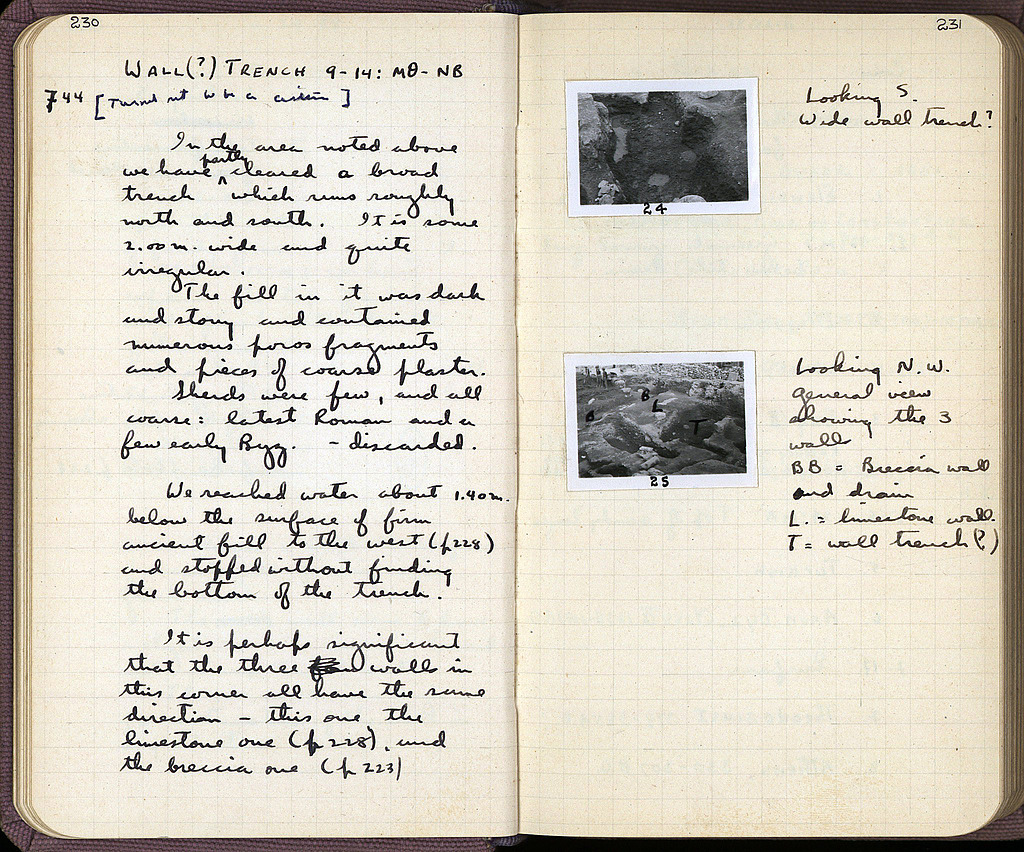 230
WALL(?) TRENCH 9-14: ΜΘ-ΝΒ
744 [Turned out to be a cistern]
In the area noted above
we have partly cleared a broad
trench which runs roughly
north and south. It is some
2.00 m. wide and quite
irregular.
The fill in it was dark
and stony and contained
numerous poros fragments
and pieces of coarse plaster.
Sherds were few, and all
coarse: latest Roman and a
few early Byz. - discarded.
We reached water about 1.40 m.
below the surface of firm
ancient fill to the west (p 228)
and stopped without finding
the bottom of the trench.
It is perhaps significant
that the three walls in
this corner all have the same
direction - this one the
limestone one (p 228), and
the breccia one (p 223)
231
Looking S.
Wide wall trench?
24
Looking N.W.
general view
showing the 3
walls
BB = Breccia wall
and drain
L. = limestone wall.
T = wall trench(?)
B
B
L
T
25